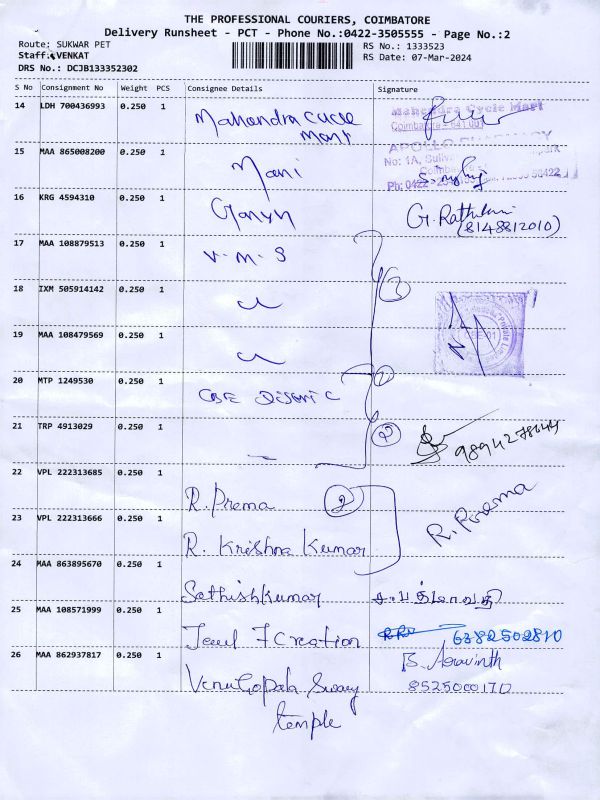 THE PROFESSIONAL COURIERS, COIMBATORE
Delivery Runsheet - PCT - Phone No.:0422-3505555 - Page No.:2
Route: SUKWAR PET
Staff: VENKAT
DRS No.: DCJB133352302
RS No.: 1333523
RS Date: 07-Mar-2024
S No Consignment No Weight PCS Consignee Details Signature
14 LDH 700436993 0.250 1 Mahendra Cycle Mart
Mahendra Cycle Mart
Coimbatore - 641 001
15 MAA 865008200 0.250 1 Mani
APOLLO PHARMACY
No: 1A,
16 KRG 4594310 0.250 1 G. Rathi
(8148812010)
17 MAA 108879513 0.250 1 V.M.S 3
18 IXM 505914142 0.250 1
19 MAA 108479569 0.250 1
20 MTP 1249530 0.250 1
21 TRP 4913029 0.250 1 2
22 VPL 222313685 0.250 1 R. Prema 2
23 VPL 222313666 0.250 1 R. Krishna Kumar R. Prema
24 MAA 863895670 0.250 1 Sathishkumar
25 MAA 108571999 0.250 1 Creation 6382502810
26 MAA 862937817 0.250 1 Venu Gopala Swamy temple B. Aravinth
8525000170